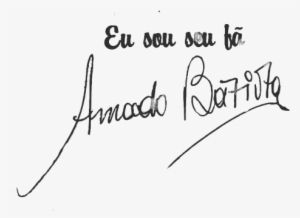 Eu sou seu fã
Amado Batista